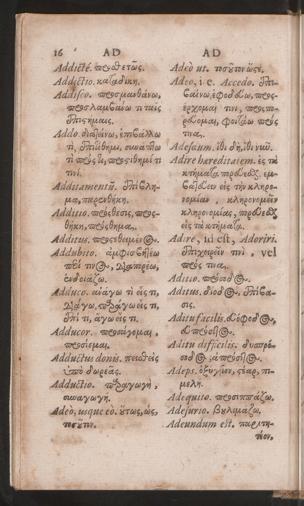 16 AD
Addictè. προσθετῶς.
Addictio. καταδίκη.
Addisco. προσμανθάνω,
προσλαμβάνω τι ταῖς
ἐπιστήμαις.
Addo. ἐπιβάλλω
τι, ἐπιτίθημι, συνάπτω
τὶ πρός τι, προστίθημί τί
τινι.
Additamentũ. ἐπίβλημα,
παρενθήκη.
Additio. πρόσθεσις, προσθήκη,
πρόσθημα.
Additus. προστιθέμενος.
Addubito. ἀμφισβητέω
περί τινος, διαπορέω,
ἐνδοιάζω.
Adduco. ἀνάγω τὶ ἔς τι,
ἐπί τι, ἄγω ἔς τι.
Adducor. προσάγομαι,
προσίεμαι.
Adductus donis.
ὑπὸ δωρεᾶς.
Adductio. παραγωγή,
συναγωγή.
Adeò, usque eò. οὕτως, ὡς,
τοσοῦτον.
AD
Adeò ut. τοσοῦτον ὥστε.
Adeo, i.e. Accedo. ἐπιβαίνω,
ἐφοδεύω, προσέρχομαί
τινι, προσπορεύομαι,
φοιτάω πρός
τινα.
Adesdum. ἴθι δὴ, ἴθι νυῦ.
Adire hæreditatem. ἐς τὰ
κτήματα παρελθεῖν, ἐμβατεύειν
εἰς τὴν κληρονομίαν,
κληρονομεῖν
κληρονομίας, παρελθεῖν
εἰς τὰ κτήματα.
Adire, id est, Adoriri.
ἐπιχειρεῖν τινὶ, vel
πρός τινα.
Aditio. πρόσοδος.
Aditus. δίοδος, ἐπίβασις.
Aditu facilis. εὐέφοδος,
εὐπρόσιτος.
Aditu difficilis. δυσπρόσοδος,
ἀπρόσιτος.
Adeps. ὀξύγγιον, στέαρ, πιμελή.
Adequito. προσιππάζω.
Adesurio. βουλιμιάζω.
Adeundum est. παριτητέον,